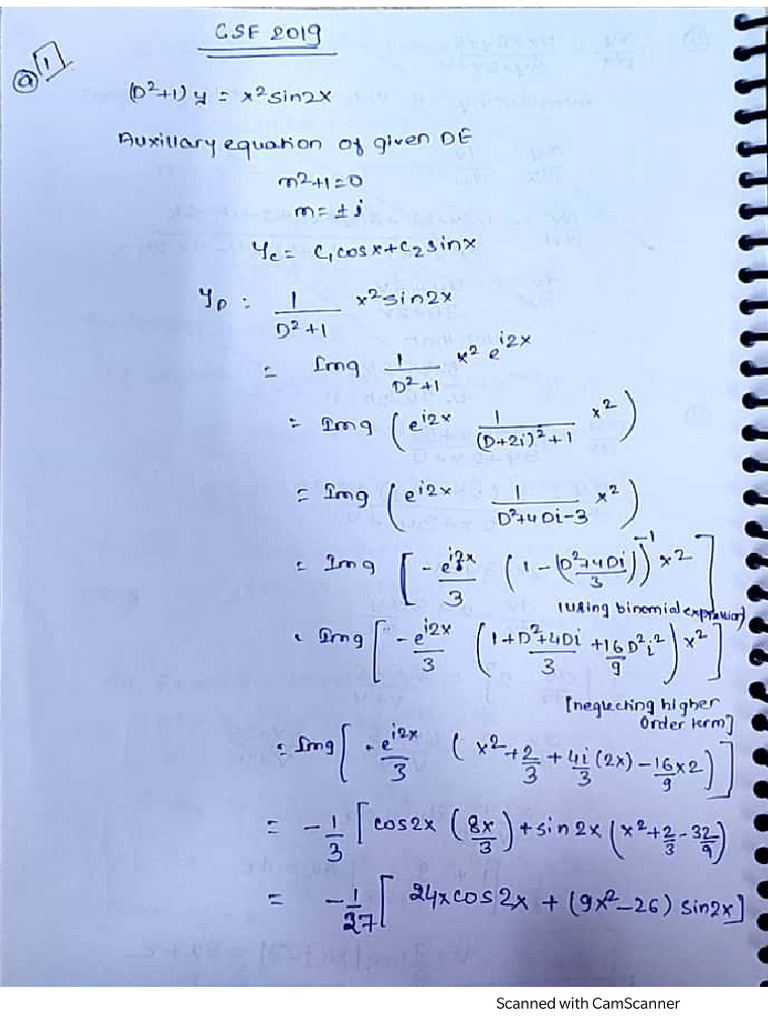 CSE 2019
Q 1
(D²+1) y = x² sin2x
Auxillary equation of given DE
m²+1=0
m = ± i
y_c = c₁cosx+c₂sinx
y_p : 1/(D²+1) x² sin2x
= Img 1/(D²+1) x² e^{i2x}
= Img ( e^{i2x} 1/((D+2i)²+1) x² )
= Img ( e^{i2x} 1/(D²+4Di-3) x² )
= Img [ -e^{i2x}/3 ( 1 - (D²+4Di)/3 )^{-1} x² ]
(using binomial expression)
= Img [ -e^{i2x}/3 ( 1+ (D²+4Di)/3 + 16/9 D²i² ) x² ]
[neglecting higher
order term]
= Img [ -e^{i2x}/3 ( x² + 2/3 + 4i/3 (2x) - 16/9 x2 ) ]
= -1/3 [ cos2x ( 8x/3 ) + sin2x ( x² + 2/3 - 32/9 )
= -1/27 [ 24x cos2x + (9x²-26) sin2x ]
Scanned with CamScanner